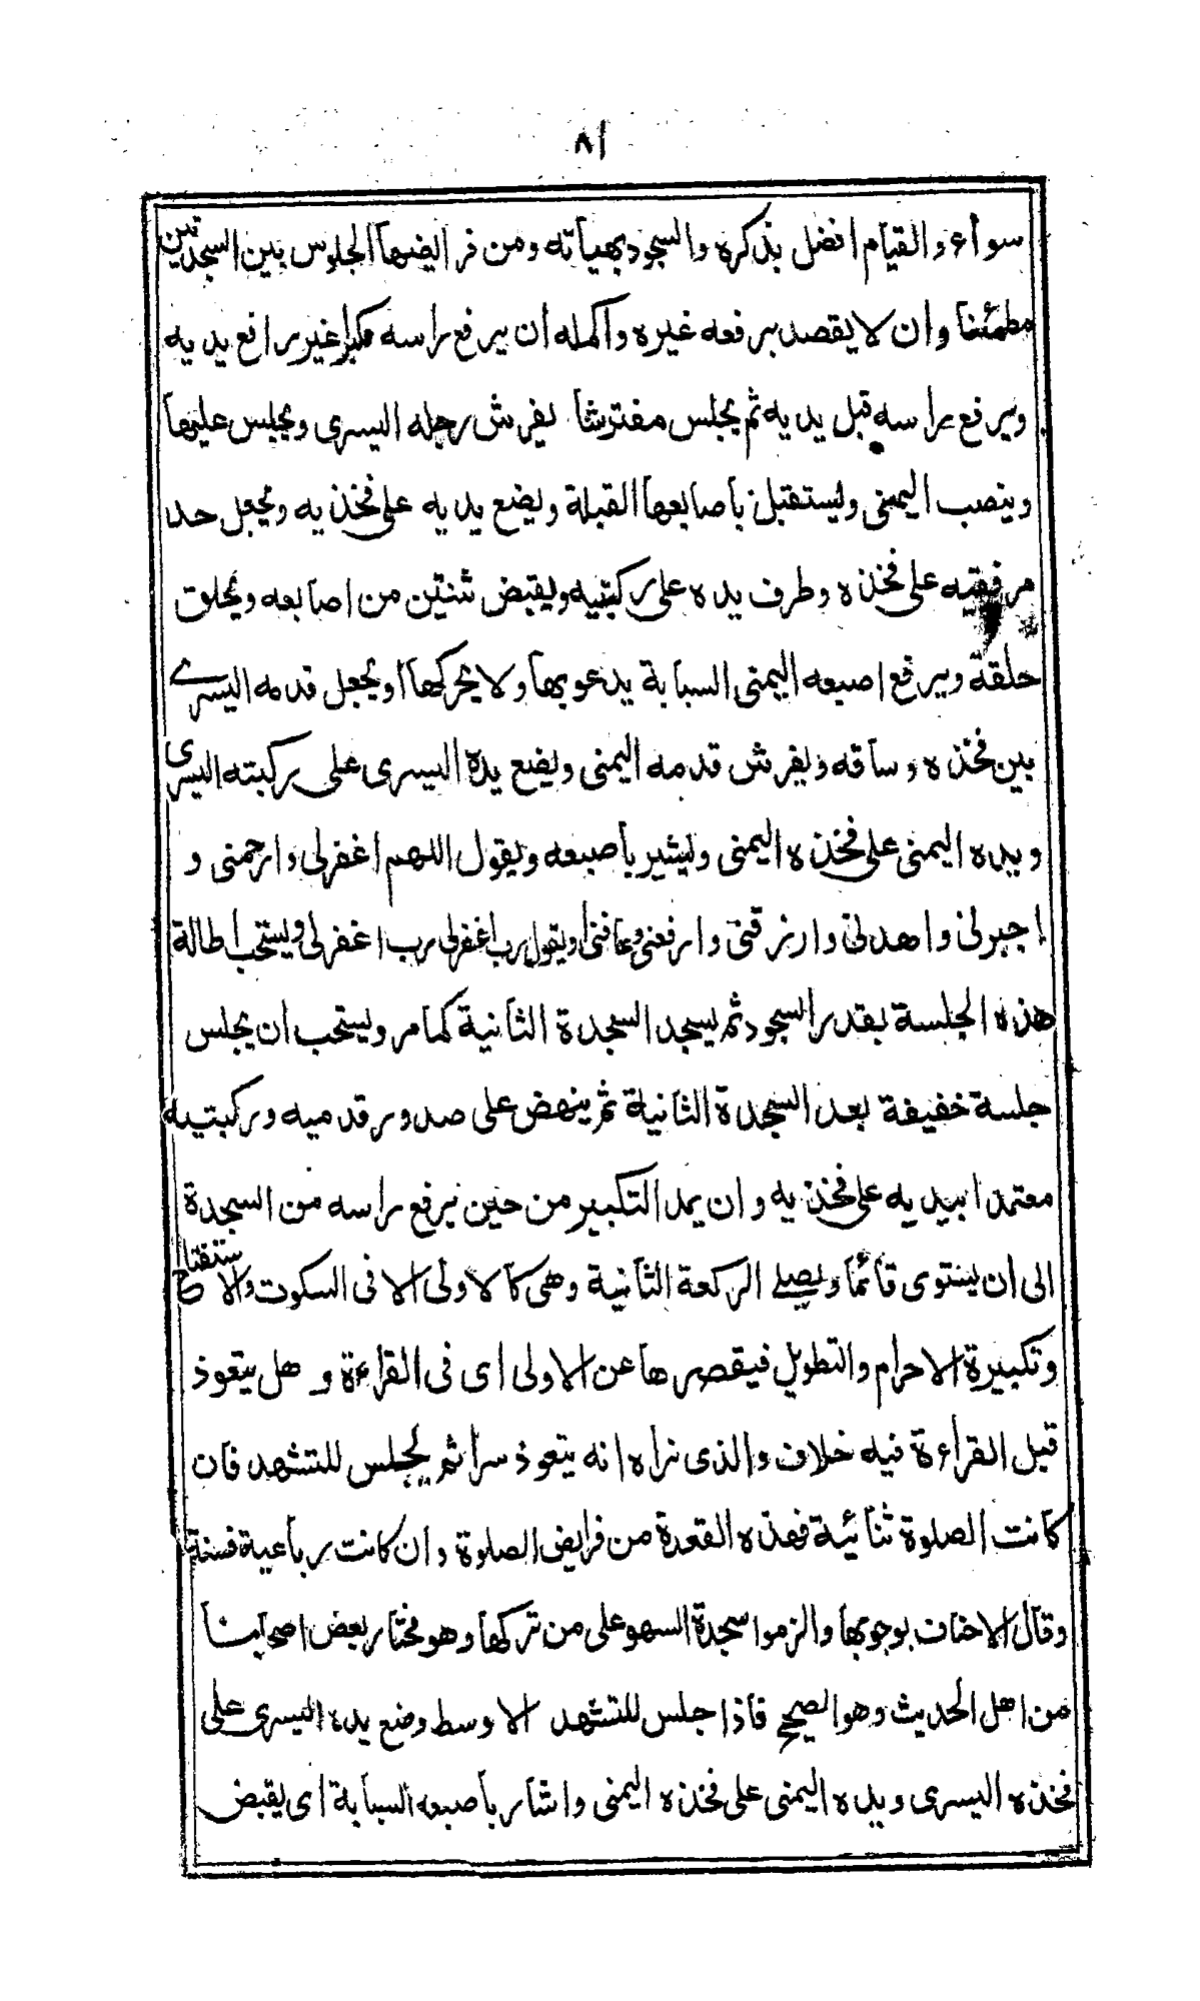 ٨١
سواء والقيام افضل بذكره والسجود بهيآته ومن فرايضها الجلوس بين السجدتين
مطمئنا وان لا يقصد برفعه غيره واكمله ان يرفع راسه مكبرا غير رافع يديه
ويرفع راسه قبل يديه ثم يجلس مفترشا يفرش رجله اليسرى ويجلس عليها
وينصب اليمنى ويستقبل باصابعها القبلة ويضع يديه على فخذيه ويجعل حد
مرفقه على فخذه وطرف يده على ركبتيه ويقبض ثنتين من اصابعه ويحلق
حلقة ويرفع اصبعه اليمنى السبابة يدعو بها ولا يحركها او يجعل قدمه اليسرے
بين فخذه وساقه ويفرش قدمه اليمنى ويضع يده اليسرى على ركبته اليسرى
ويده اليمنى على فخذه اليمنى ويشير باصبعه ويقول اللهم اغفرلى وارحمنى و
اجبرنى واهدنى وارزقنى وارفعنى وعافنى او يقول رب اغفرلى رب اغفرلى ويستحب اطالة
هذه الجلسة بقدر السجود ثم يسجد السجدة الثانية كما مر ويستحب ان يجلس
جلسة خفيفة بعد السجدة الثانية ثم ينهض على صدور قدميه وركبتيه
معتمدا بيديه على فخذيه وان يمد التكبير من حين يرفع راسه من السجدة
الى ان يستوى قائما ويصلے الركعة الثانية وهى كالاولى الا فى السكوت والاستفتاح
وتكبيرة الاحرام والتطويل فيقصرها عن الاولى اى فى القراءة و هل يتعوذ
قبل القراءة فيه خلاف والذى نراه انه يتعوذ سرا ثم يجلس للتشهد فان
كانت الصلوة ثنائية فهذه القعدة من فرايض الصلوة وان كانت رباعية فسنة
وقال الاحناف بوجوبها والزموا سجدة السهو على من تركها وهو مختار بعض اصحابنا
من اهل الحديث وهو الصحيح فاذا جلس للتشهد الاوسط وضع يده اليسرى على
فخذه اليسرى ويده اليمنى على فخذه اليمنى واشار باصبعه السبابة اى يقبض